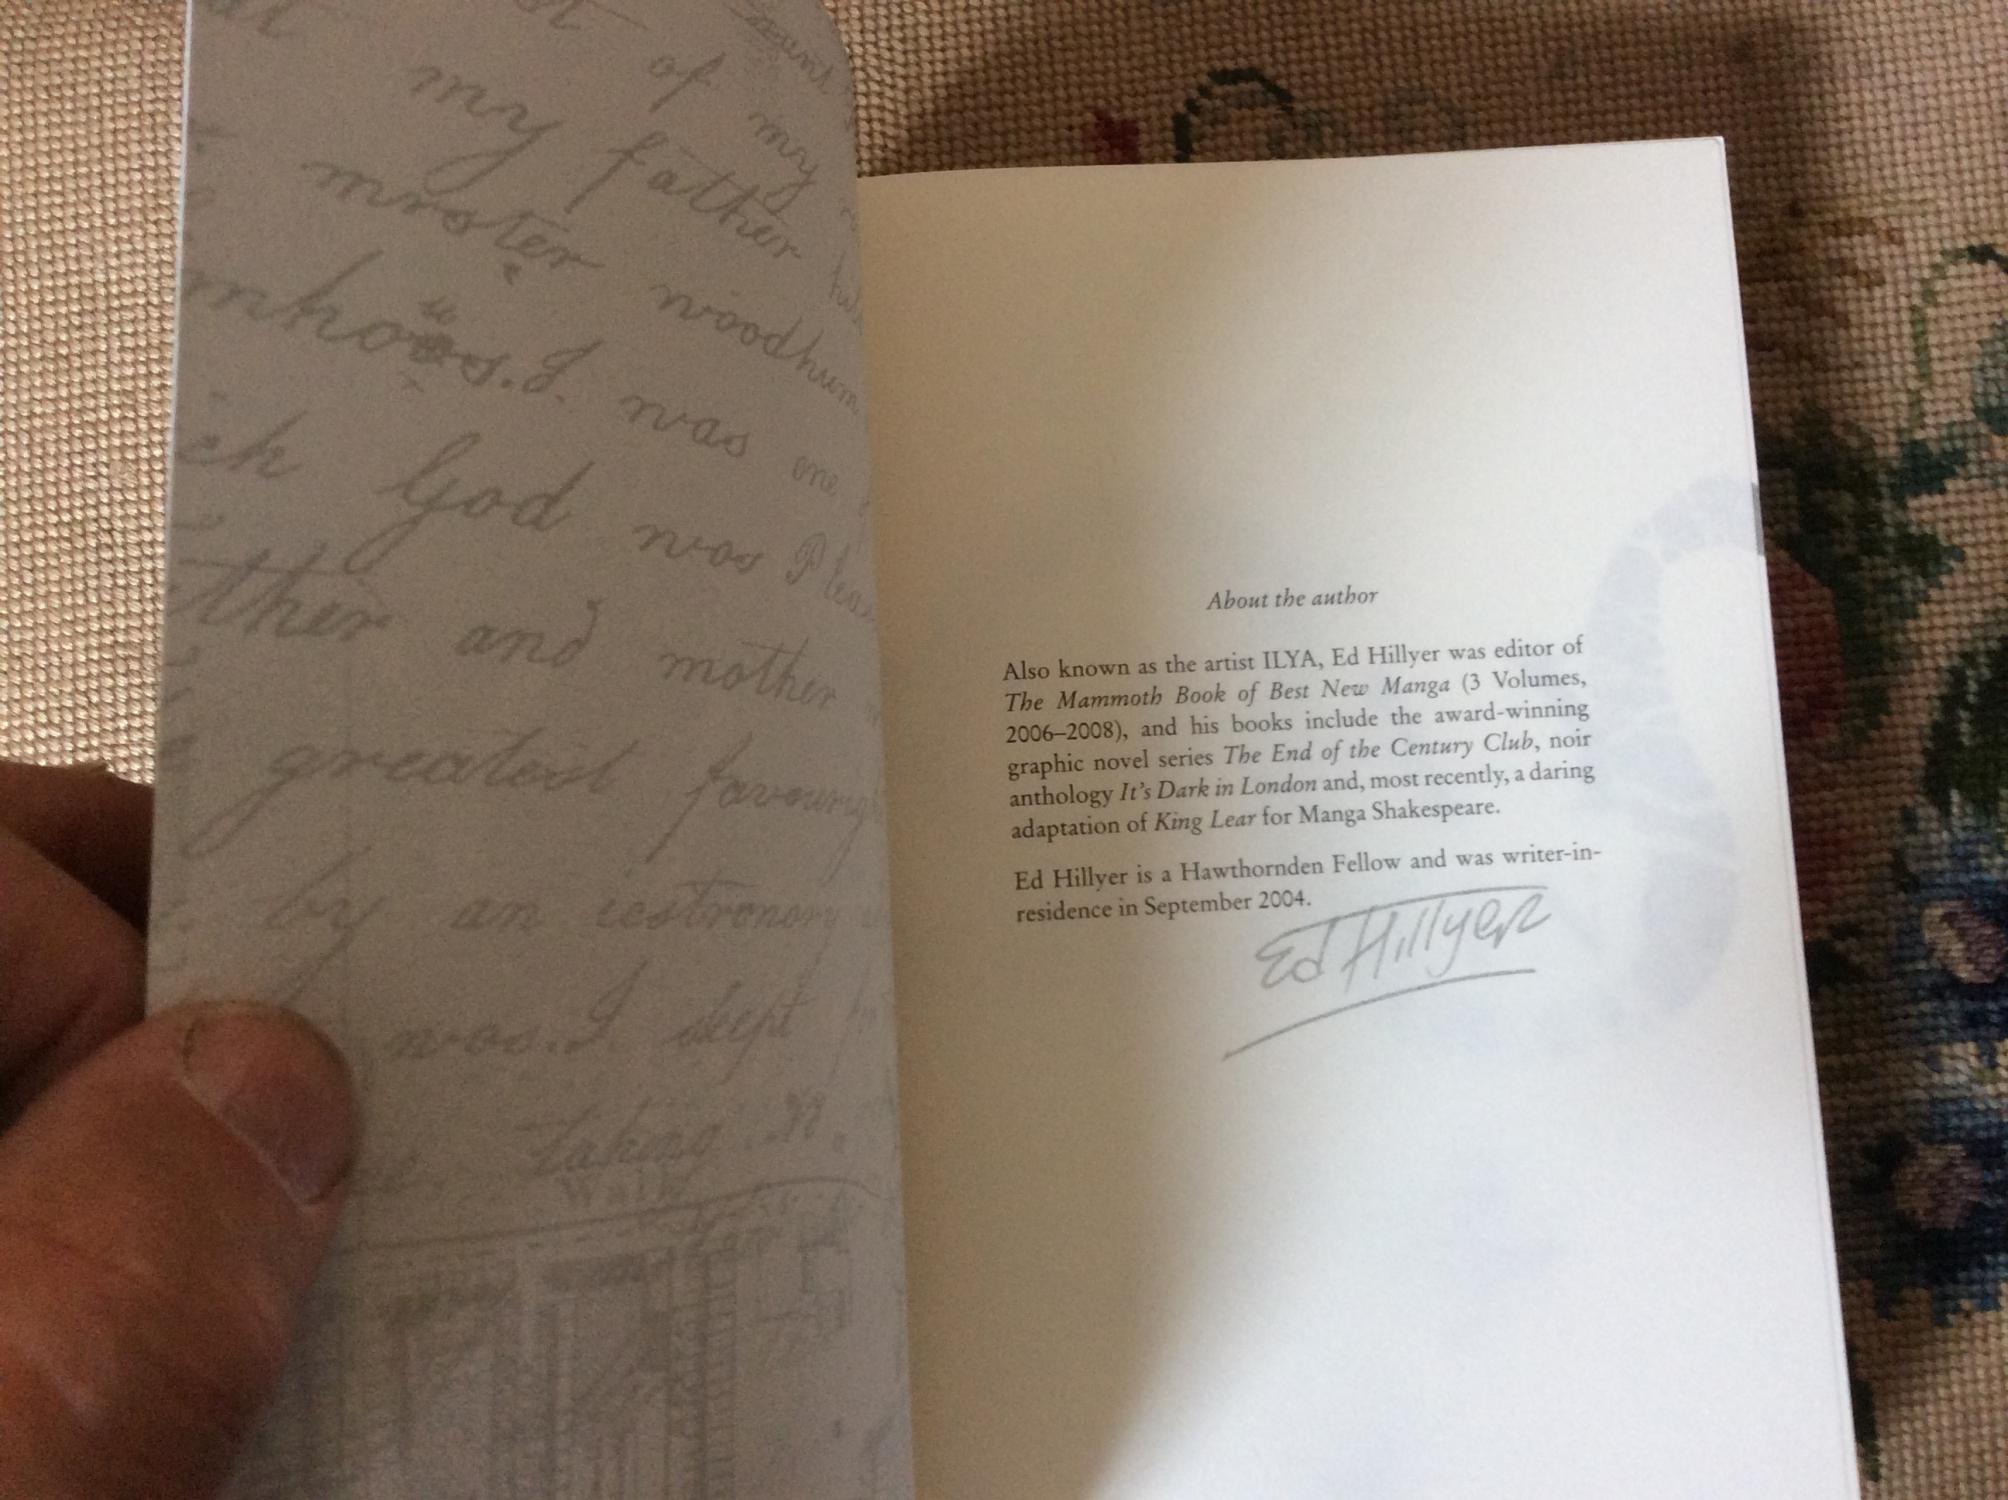 of my
my father
mrster woodhum
was one
God was Plea
ther and mother
greatest favour
by an
was. I slept
taking
Walk
About the author
Also known as the artist ILYA, Ed Hillyer was editor of
The Mammoth Book of Best New Manga (3 Volumes,
2006–2008), and his books include the award-winning
graphic novel series The End of the Century Club, noir
anthology It's Dark in London and, most recently, a daring
adaptation of King Lear for Manga Shakespeare.
Ed Hillyer is a Hawthornden Fellow and was writer-in-
residence in September 2004.
Ed Hillyer